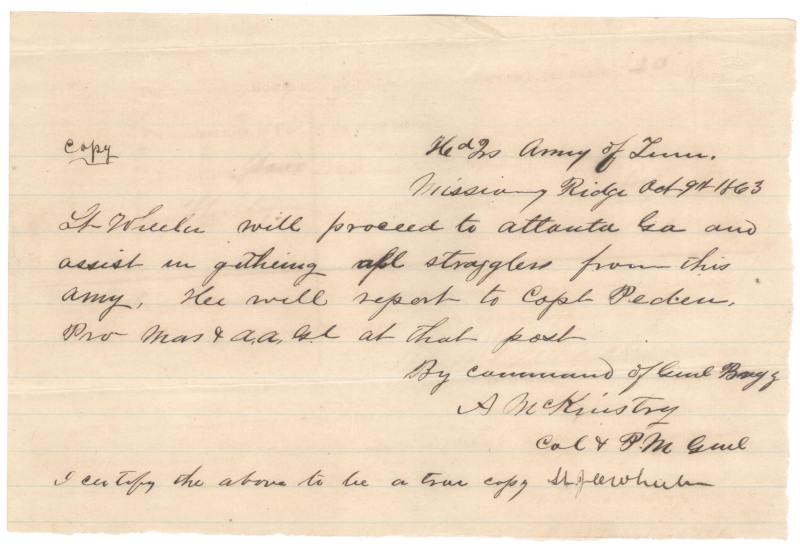 Copy
Hd Qrs Army of Tenn.
Missionary Ridge Oct 9th 1863
Lt Wheeler will proceed to Atlanta Ga and
assist in gathering all stragglers from this
army, He will report to Capt Peden,
Pro Mar & A.A.Gl at that post
By command of Genl Bragg
A McKinstry
Col & P.M Genl
I certify the above to be a true copy Lt Wheeler